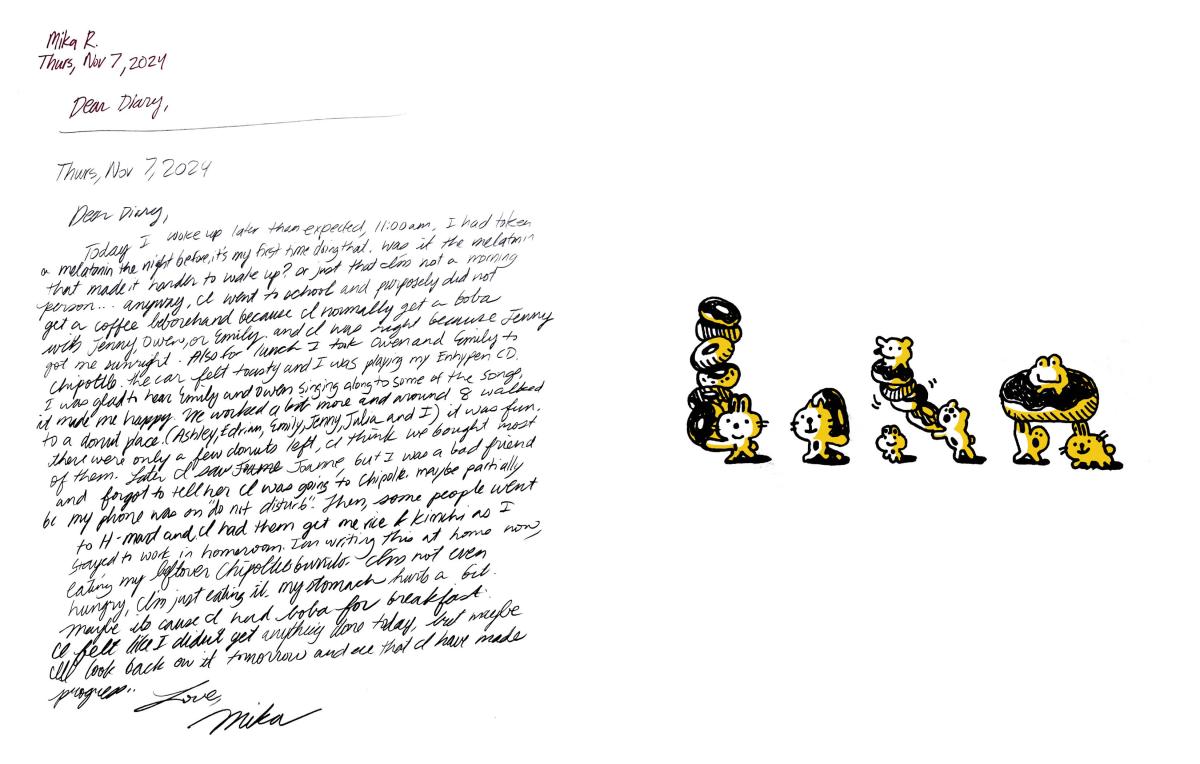 Mika R.
Thurs, Nov 7, 2024
Dear Diary,
Thurs, Nov 7, 2024
Dear Diary,
Today I woke up later than expected, 11:00am, I had taken
a melatonin the night before, it's my first time doing that. Was it the melatonin
that made it harder to wake up? or just that I'm not a morning
person... anyway, I went to school and purposely did not
get a coffee beforehand because I normally get a boba
with Jenny, Owen, or Emily, and I was right because Jenny
got me sunright. Also for lunch I took Owen and Emily to
Chipotle. the car felt toasty and I was playing my Enhypen CD.
I was glad to hear Emily and Owen singing along to some of the songs,
it made me happy. We worked a bit more and around 8 walked
to a donut place. (Ashley, Edrim, Emily, Jenny, Julia, and I) it was fun.
there were only a few donuts left, I think we bought most
of them. Later I saw Joanne, but I was a bad friend
and forgot to tell her I was going to Chipotle. maybe partially
bc my phone was on "do not disturb". Then, some people went
to H-mart and I had them get me rice & kimchi as I
stayed to work in homeroom. I'm writing this at home now,
eating my leftover Chipotle burrito. I'm not even
hungry, I'm just eating it. my stomach hurts a bit.
maybe its cause I had boba for breakfast.
I felt like I didn't get anything done today, but maybe
I'll look back on it tomorrow and see that I have made
progress..
Love,
Mika